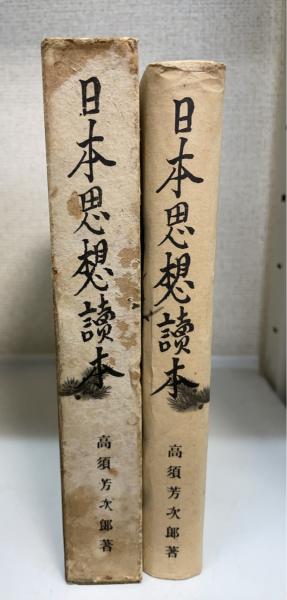 日本思想讀本
高須芳次郎著
日本思想讀本
高須芳次郎著